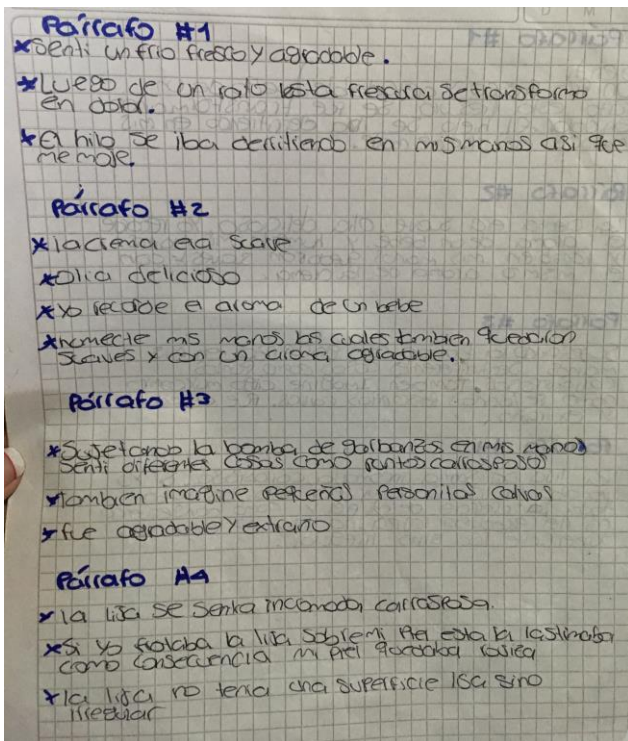 Párrafo #1
*Senti un frio fresco y agradable.
*Luego de un rato esta frescura se transformo
en dolor.
*el hilo se iba derritiendo en mis manos asi que
me moje.
Párrafo #2
*la crema era suave
*Olia delicioso
*yo recorde el aroma de un bebe
*humecte mis manos las cuales tambien quedaron
suaves y con un aroma agradable..
Párrafo #3
*Sujetando la bomba de garbanzos en mis manos
senti diferentes cosas como puntos carrasposos
*tambien imagine pequeñas personitas calvas
*fue agradable y extraño
Párrafo #4
*la lija se sentia incomoda, carrasposa.
*si yo frotaba la lija sobre mi piel esta la lastimaba
como consecuencia mi piel quedaba rojica
*la lija no tenia una superficie lisa sino
irregular